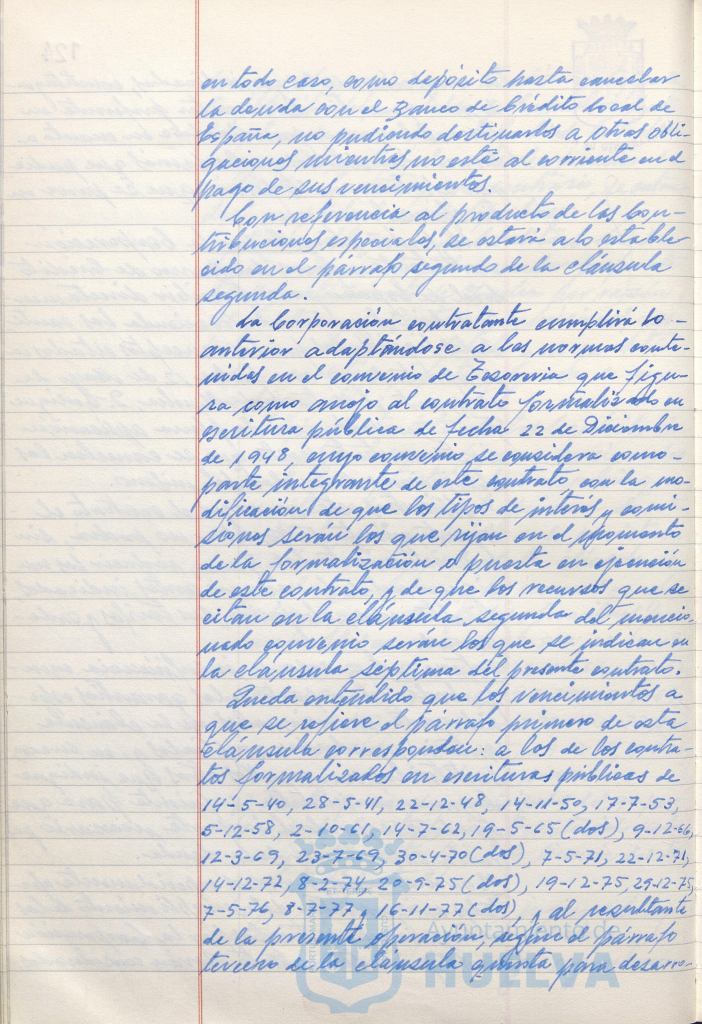 en todo caso, como depósito hasta cancelar
la deuda con el Banco de Crédito Local de
España, no pudiendo destinarlos a otras obli-
gaciones mientras no esté al corriente en el
pago de sus vencimientos.
Con referencia al producto de las Con-
tribuciones especiales, se estará a lo estable
cido en el párrafo segundo de la cláusula
segunda.
La Corporación contratante cumplirá lo
anterior adaptándose a las normas conte-
nidas en el convenio de Tesorería que figu-
ra como anejo al contrato formalizado en
escritura pública de fecha 22 de Diciembre
de 1948, cuyo convenio se considera como
parte integrante de este contrato con la mo-
dificación de que los tipos de interés y comi-
siones serán los que rijan en el momento
de la formalización o puesta en ejecución
de este contrato, y de que los recursos que se
citan en la cláusula segunda del mencio-
nado convenio serán los que se indican en
la cláusula séptima del presente contrato.
Queda entendido que los vencimientos a
que se refiere el párrafo primero de esta
cláusula corresponden: a los de los contra-
tos formalizados en escrituras públicas de
14-5-40, 28-5-41, 22-12-48, 14-11-50, 17-7-53,
5-12-58, 2-10-61, 14-7-62, 19-5-65 (dos), 9-12-66,
12-3-69, 23-7-69, 30-4-70 (dos), 7-5-71, 22-12-71,
14-12-72, 8-2-74, 20-9-75 (dos), 19-12-75, 29-12-75,
7-5-76, 8-7-77 y 16-11-77 (dos), y al resultante
de la presente operación, según el párrafo
tercero de la cláusula quinta, para desarro-
Ayuntamiento de
HUELVA